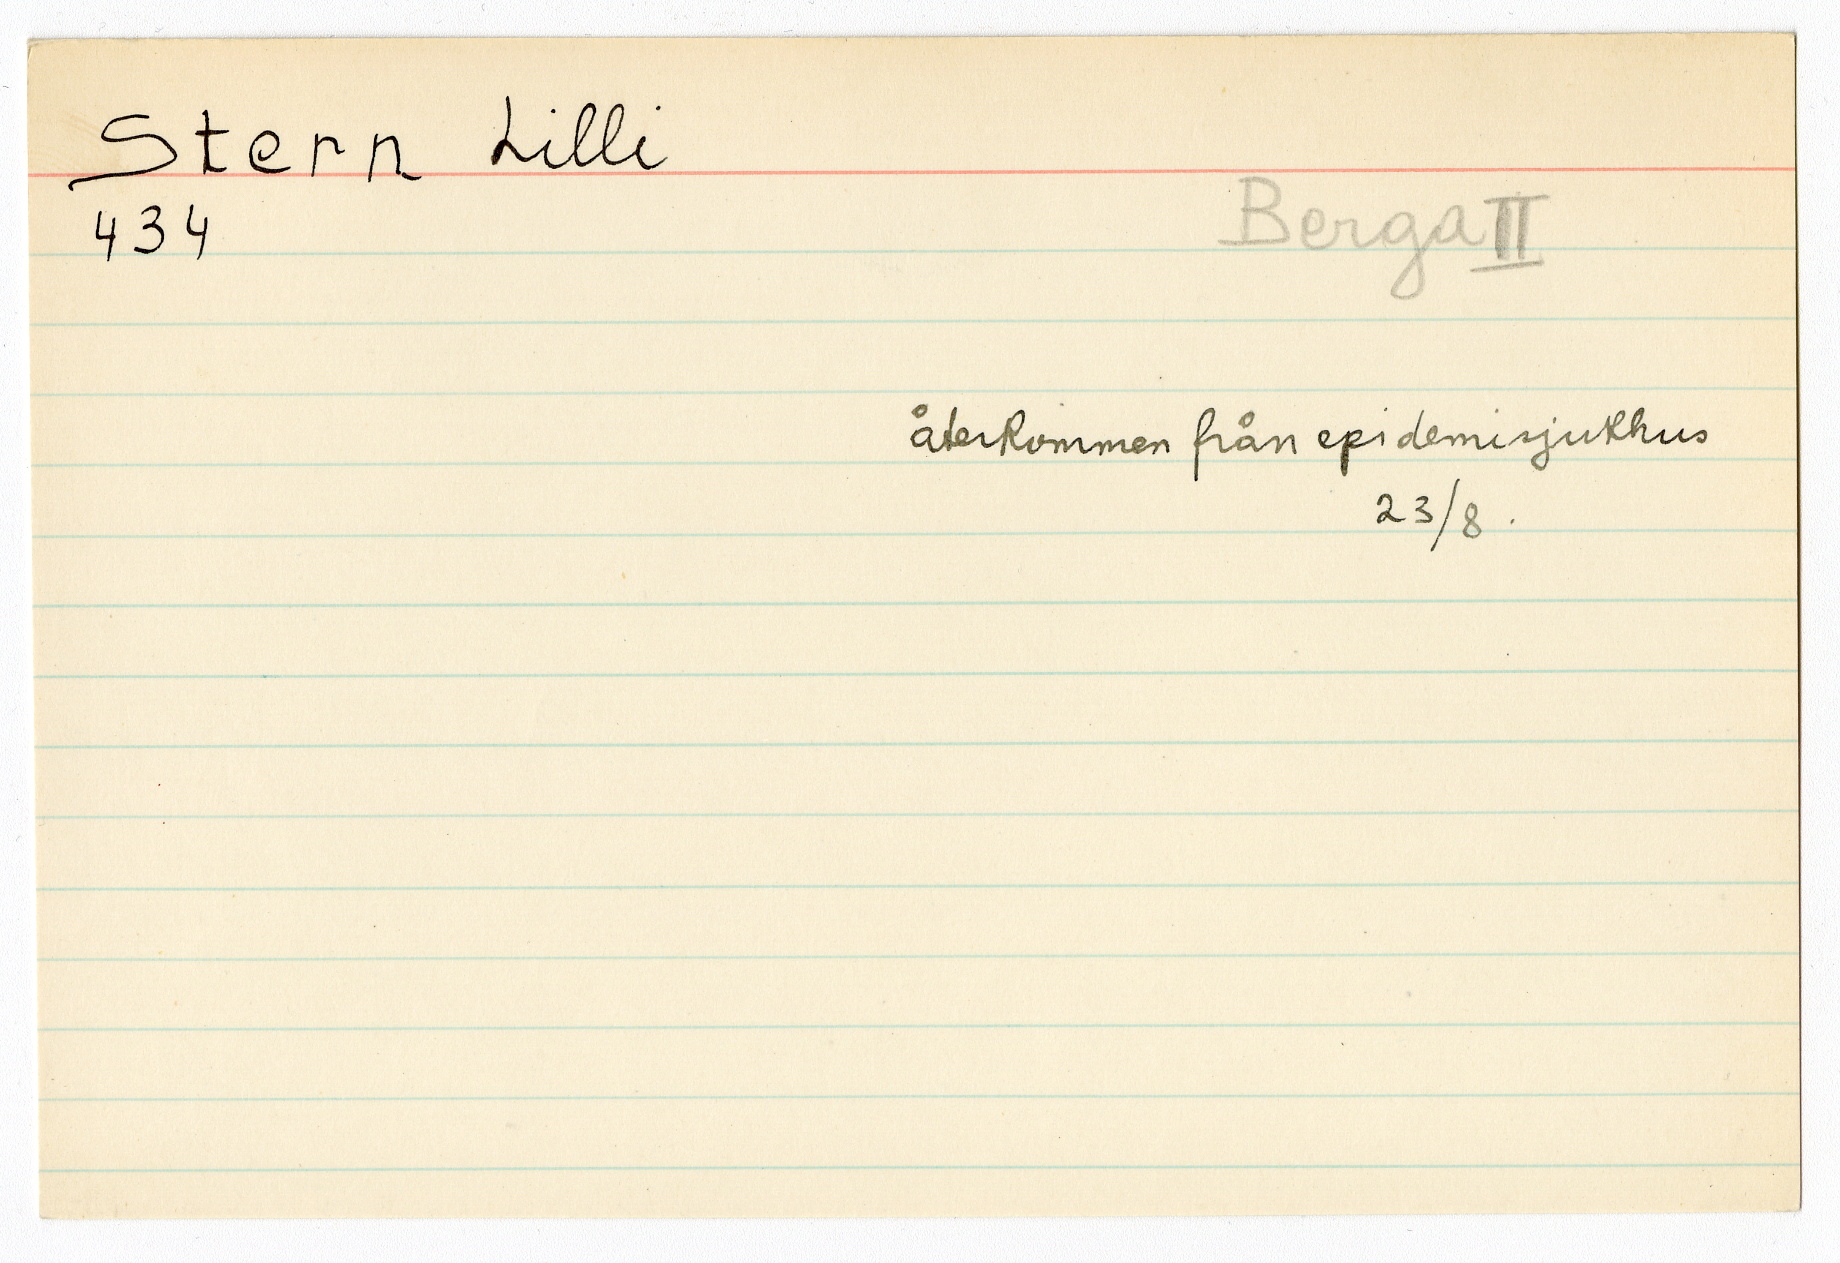 Stern Lilli
434
Berga II
återkommen från epidemisjukhus
23/8.